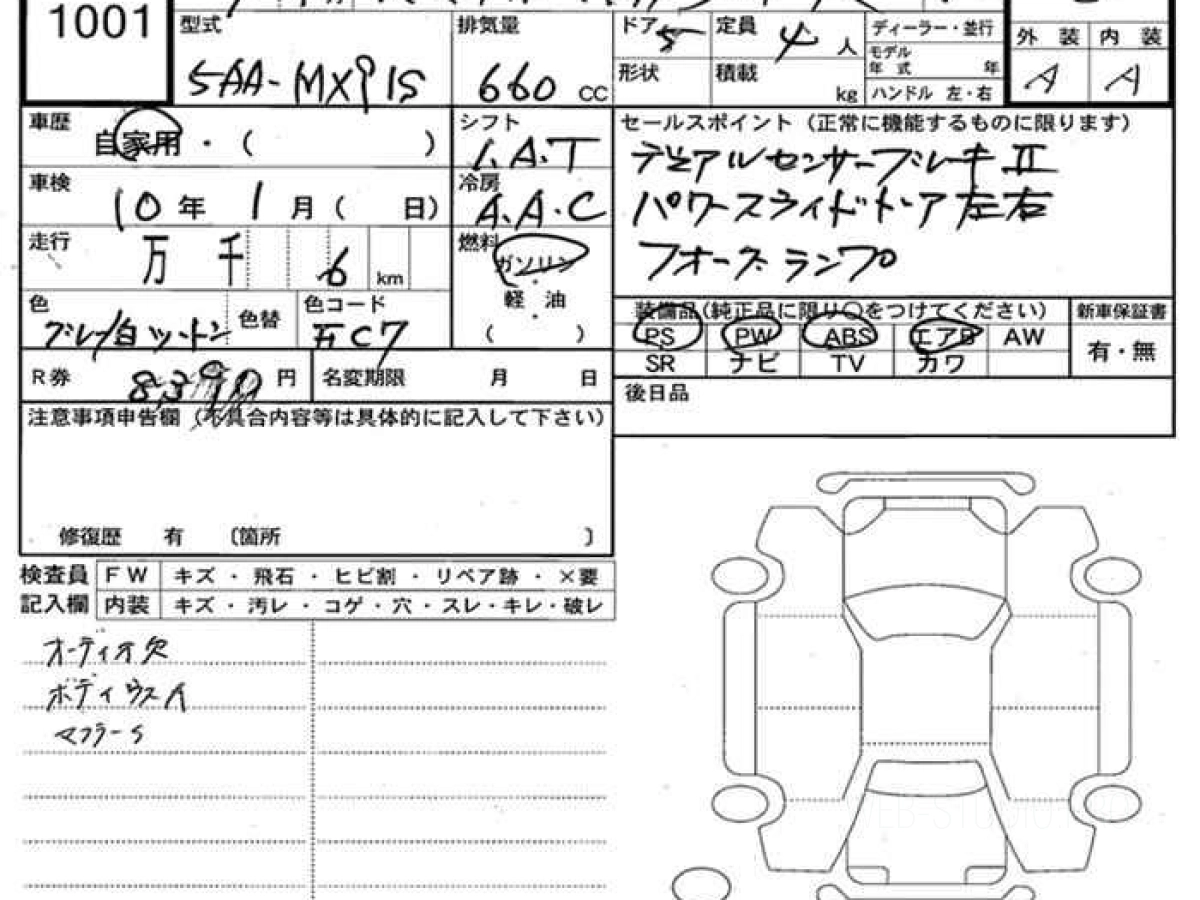 1001
型式
5AA-MX91S
排気量
660 CC
ドア 5
定員 4 人
ディーラー・並行
モデル
年 式 年
形状
積載 kg
ハンドル 左・右
外 装 内 装
A A
車歴
自家用 ・ ( )
シフト
I.A.T
セールスポイント (正常に機能するものに限ります)
デュアルセンサーブレーキⅡ
パワースライドドア左右
フォグランプ
車検
10 年 1 月 ( 日)
冷房
A.A.C
走行
万 千 6 km
燃料
ガソリン
軽 油
( )
色
グレー/白ツートン
色替
色コード
装備品(純正品に限り○をつけてください)
新車保証書
PS PW ABS エアB AW
有・無
SR ナビ TV カワ
R券
円
名変期限 月 日
後日品
注意事項申告欄 (不具合内容等は具体的に記入して下さい)
修復歴 有 〔箇所 〕
検査員
記入欄
FW キズ ・ 飛石 ・ ヒビ割 ・ リペア跡 ・ ×要
内装 キズ ・ 汚レ ・ コゲ ・ 穴 ・ スレ ・ キレ ・ 破レ
オーディオ欠
ボディウスA
マフラーS